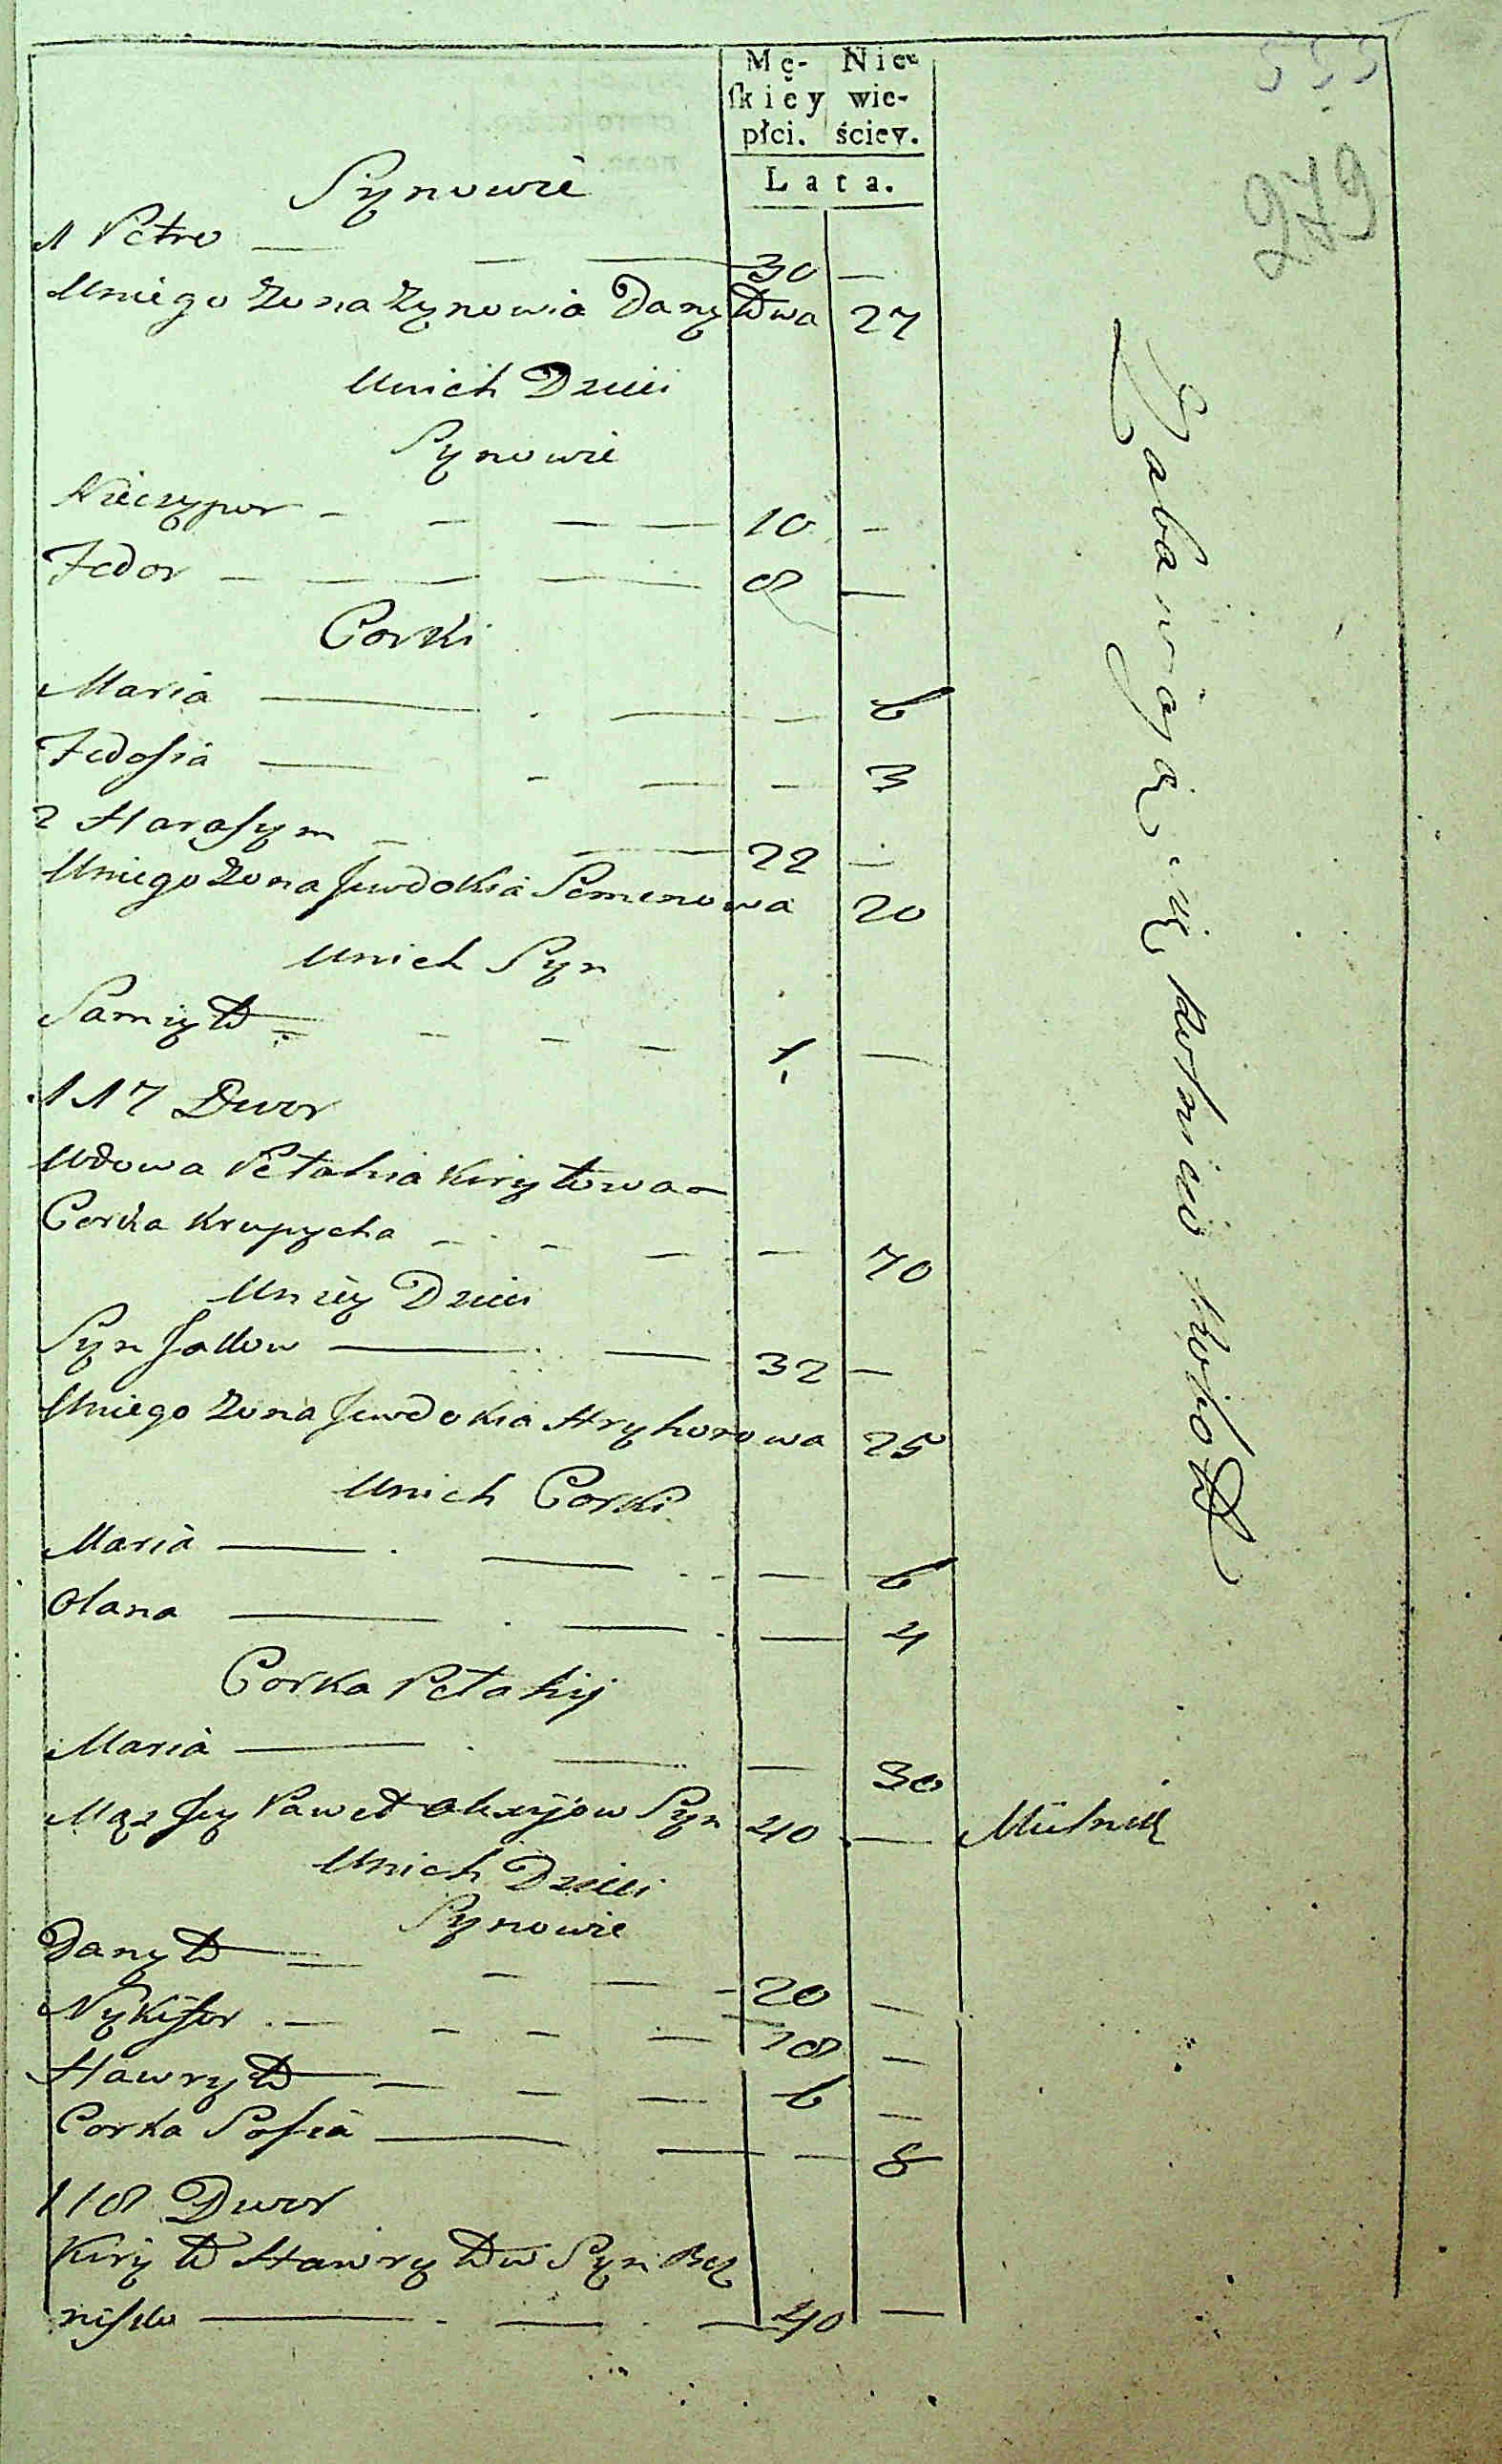 555
279
Mę- Nie-
skiey wie-
płci. ściey.
Lata.
Synowie
1 Petro — — — 30 —
Uniego Zona Zynowia Danyłowa 27
Unich Dzieci
Synowie
Nieczypor — — — — 10 —
Fedor — — — — 8 —
Corki
Maria — — — 6
Fedosia — — — — 3
2 Harasym — — 22 —
Uniego Zona Jewdokia Semenowa 20
Unich Syn
Samiyło — — — — 1 —
117 Dwor
Wdowa Petahia Kiryłowa
Corka Krupycha — — — — 70
Uniey Dzieci
Syn — — 32 —
Uniego Zona Jewdokia Hryhorowa 25
Unich Corki
Maria — — — 6
Olana — — — 4
Corka Petahij
Maria — — — 30
Mąz Jey Paweł Alexijow Syn 40 — Mielnik
Unich Dzieci
Synowie
Danyło — — — — 20 —
Nykifor — — — — 18 —
Hawryło — — — 6 —
Corka Sofia — — — 8
118 Dwor
Kiryło Hawryłow Syn
— — — 40 —
Zabawiaią się